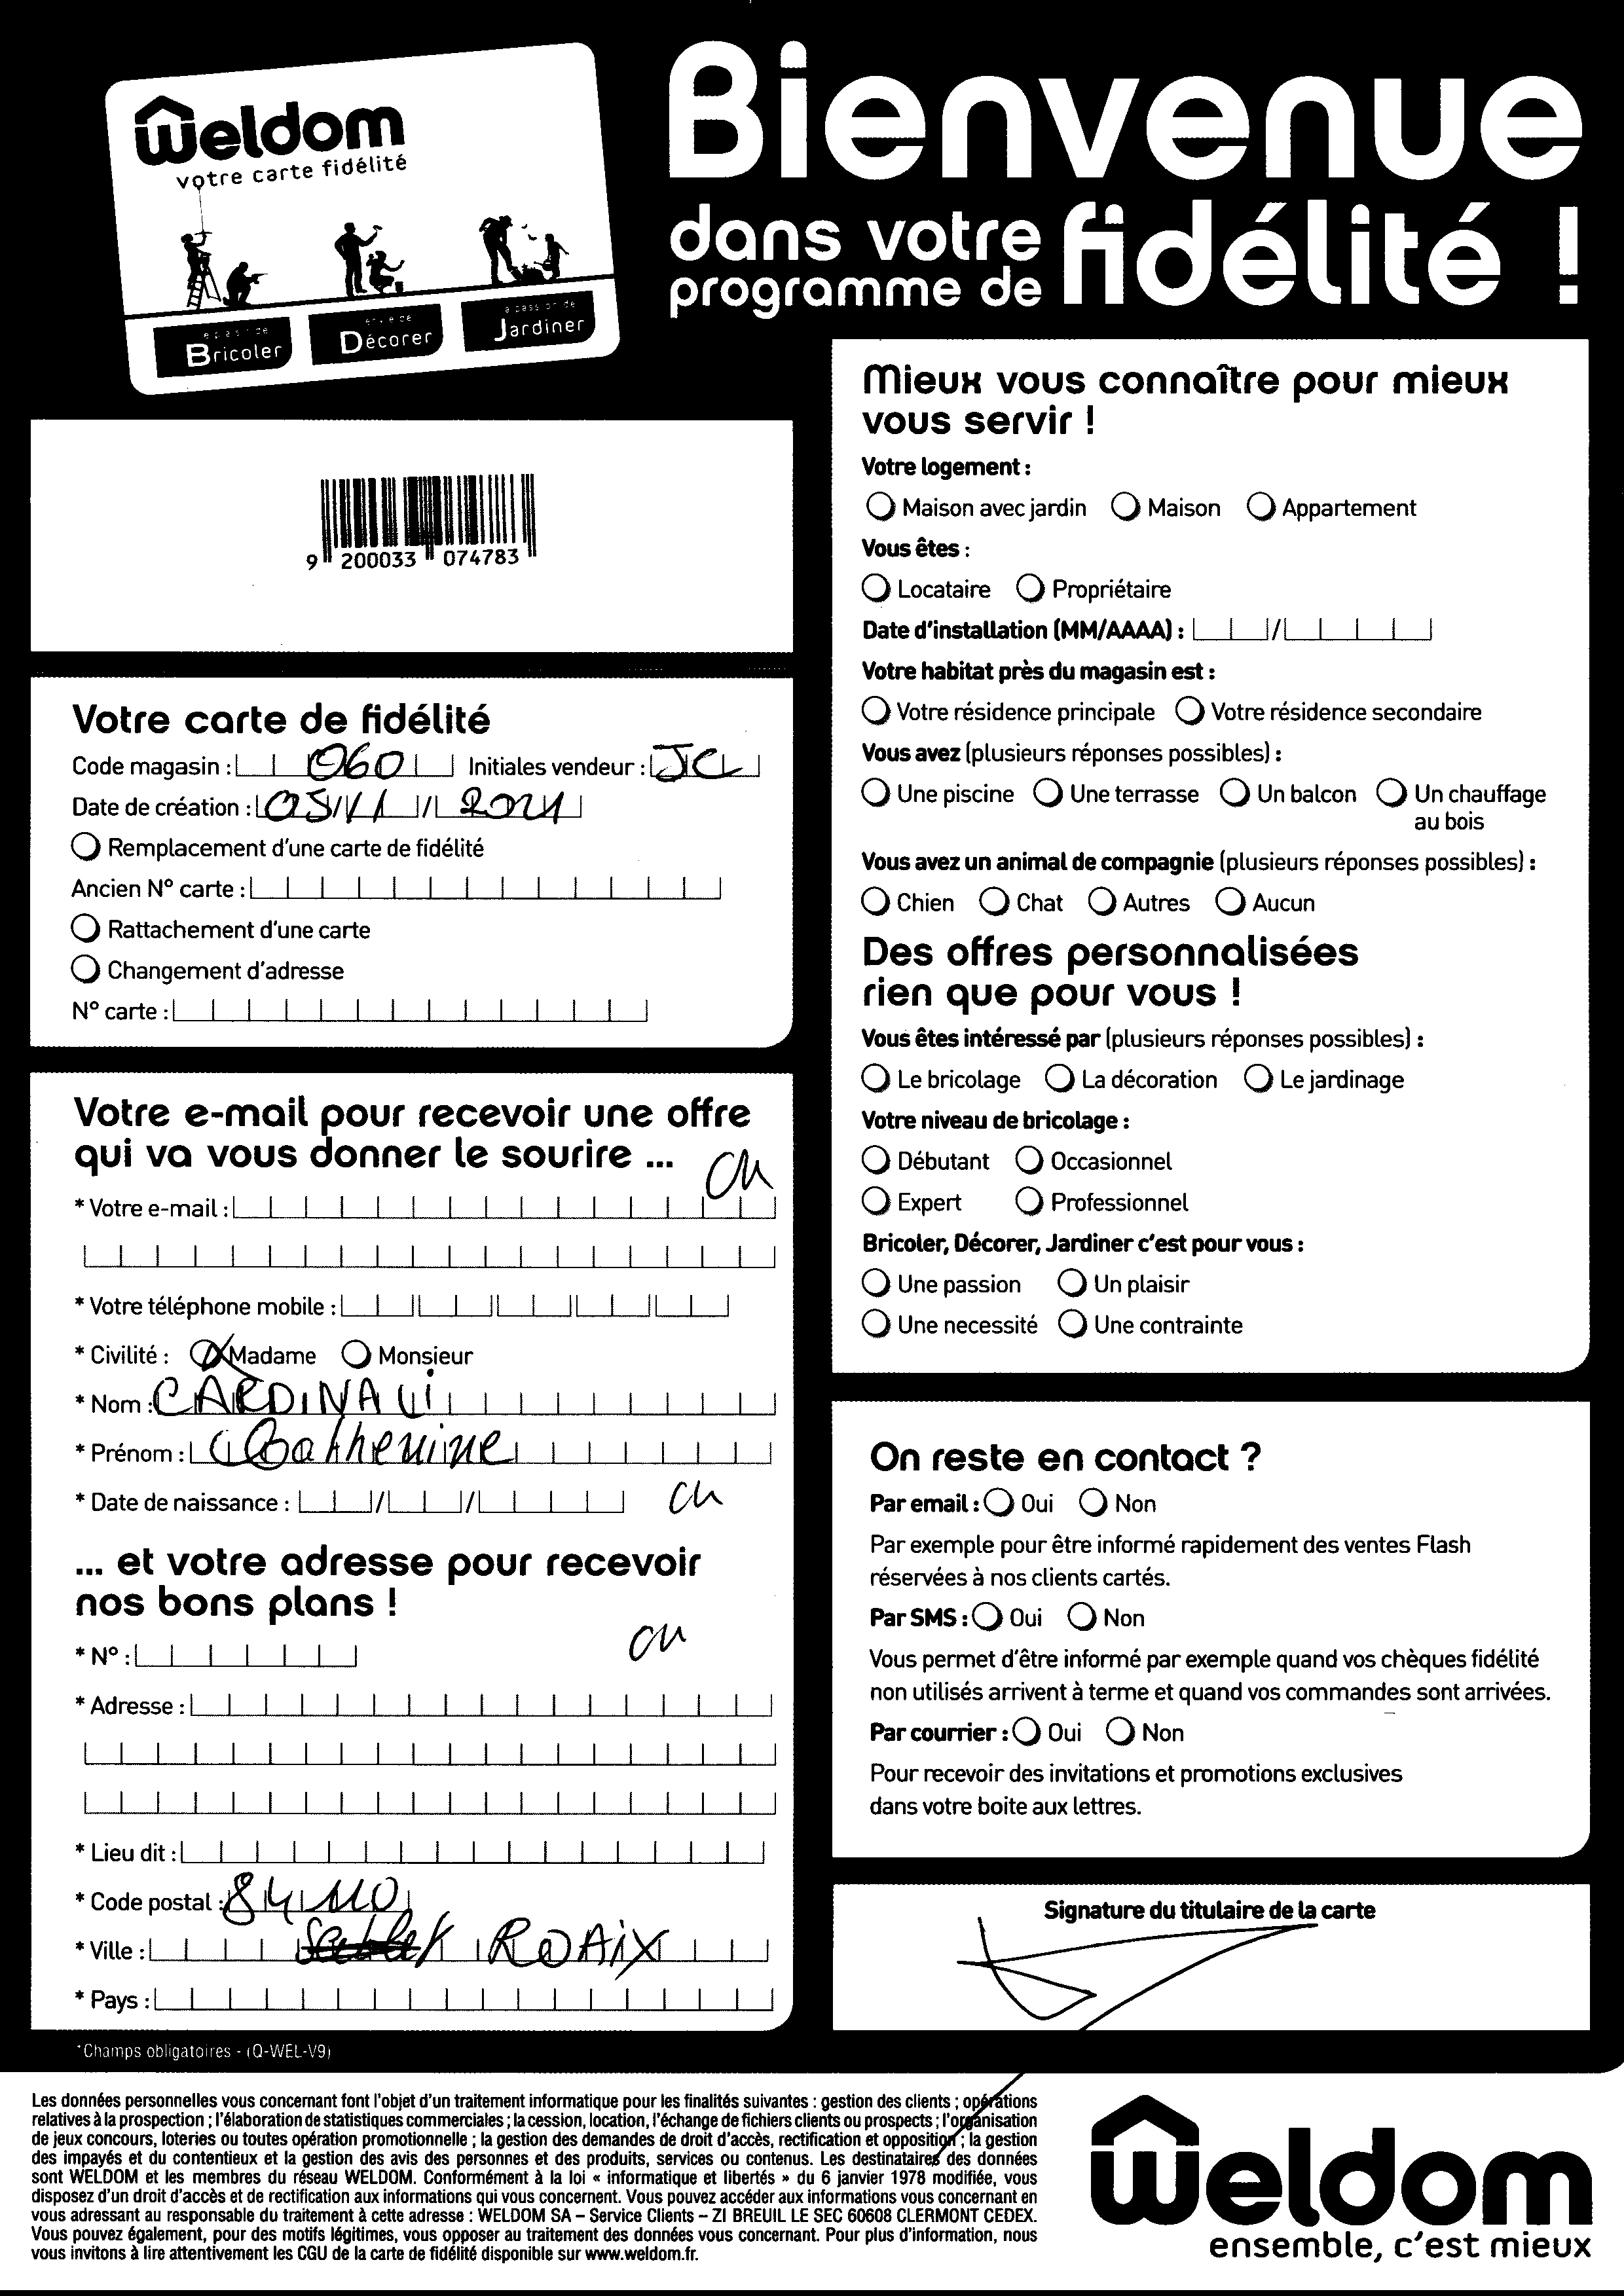 Weldom
votre carte fidélité
Bricoler
Décorer
Jardiner
Bienvenue
dans votre
programme de fidélité !
9 200033 074783
Votre carte de fidélité
Code magasin : 060 Initiales vendeur : JCL
Date de création : 05/11/2021
Remplacement d'une carte de fidélité
Ancien N° carte :
Rattachement d'une carte
Changement d'adresse
N° carte :
Votre e-mail pour recevoir une offre
qui va vous donner le sourire ...
* Votre e-mail :
* Votre téléphone mobile :
* Civilité : Madame Monsieur
* Nom : CARDINALi
* Prénom : Catherine
* Date de naissance : / /
... et votre adresse pour recevoir
nos bons plans !
* N° :
* Adresse :
* Lieu dit :
* Code postal : 84110
* Ville : ROAiX
* Pays :
*Champs obligatoires - (Q-WEL-V9)
Mieux vous connaître pour mieux
vous servir !
Votre logement :
Maison avec jardin Maison Appartement
Vous êtes :
Locataire Propriétaire
Date d'installation (MM/AAAA) : /
Votre habitat près du magasin est :
Votre résidence principale Votre résidence secondaire
Vous avez (plusieurs réponses possibles) :
Une piscine Une terrasse Un balcon Un chauffage
au bois
Vous avez un animal de compagnie (plusieurs réponses possibles) :
Chien Chat Autres Aucun
Des offres personnalisées
rien que pour vous !
Vous êtes intéressé par (plusieurs réponses possibles) :
Le bricolage La décoration Le jardinage
Votre niveau de bricolage :
Débutant Occasionnel
Expert Professionnel
Bricoler, Décorer, Jardiner c'est pour vous :
Une passion Un plaisir
Une necessité Une contrainte
On reste en contact ?
Par email : Oui Non
Par exemple pour être informé rapidement des ventes Flash
réservées à nos clients cartés.
Par SMS : Oui Non
Vous permet d'être informé par exemple quand vos chèques fidélité
non utilisés arrivent à terme et quand vos commandes sont arrivées.
Par courrier : Oui Non
Pour recevoir des invitations et promotions exclusives
dans votre boite aux lettres.
Signature du titulaire de la carte
Les données personnelles vous concernant font l'objet d'un traitement informatique pour les finalités suivantes : gestion des clients ; opérations
relatives à la prospection ; l'élaboration de statistiques commerciales ; la cession, location, l'échange de fichiers clients ou prospects ; l'organisation
de jeux concours, loteries ou toutes opération promotionnelle ; la gestion des demandes de droit d'accès, rectification et opposition ; la gestion
des impayés et du contentieux et la gestion des avis des personnes et des produits, services ou contenus. Les destinataires des données
sont WELDOM et les membres du réseau WELDOM. Conformément à la loi « informatique et libertés » du 6 janvier 1978 modifiée, vous
disposez d'un droit d'accès et de rectification aux informations qui vous concernent. Vous pouvez accéder aux informations vous concernant en
vous adressant au responsable du traitement à cette adresse : WELDOM SA – Service Clients – ZI BREUIL LE SEC 60608 CLERMONT CEDEX.
Vous pouvez également, pour des motifs légitimes, vous opposer au traitement des données vous concernant. Pour plus d'information, nous
vous invitons à lire attentivement les CGU de la carte de fidélité disponible sur www.weldom.fr.
Weldom
ensemble, c'est mieux